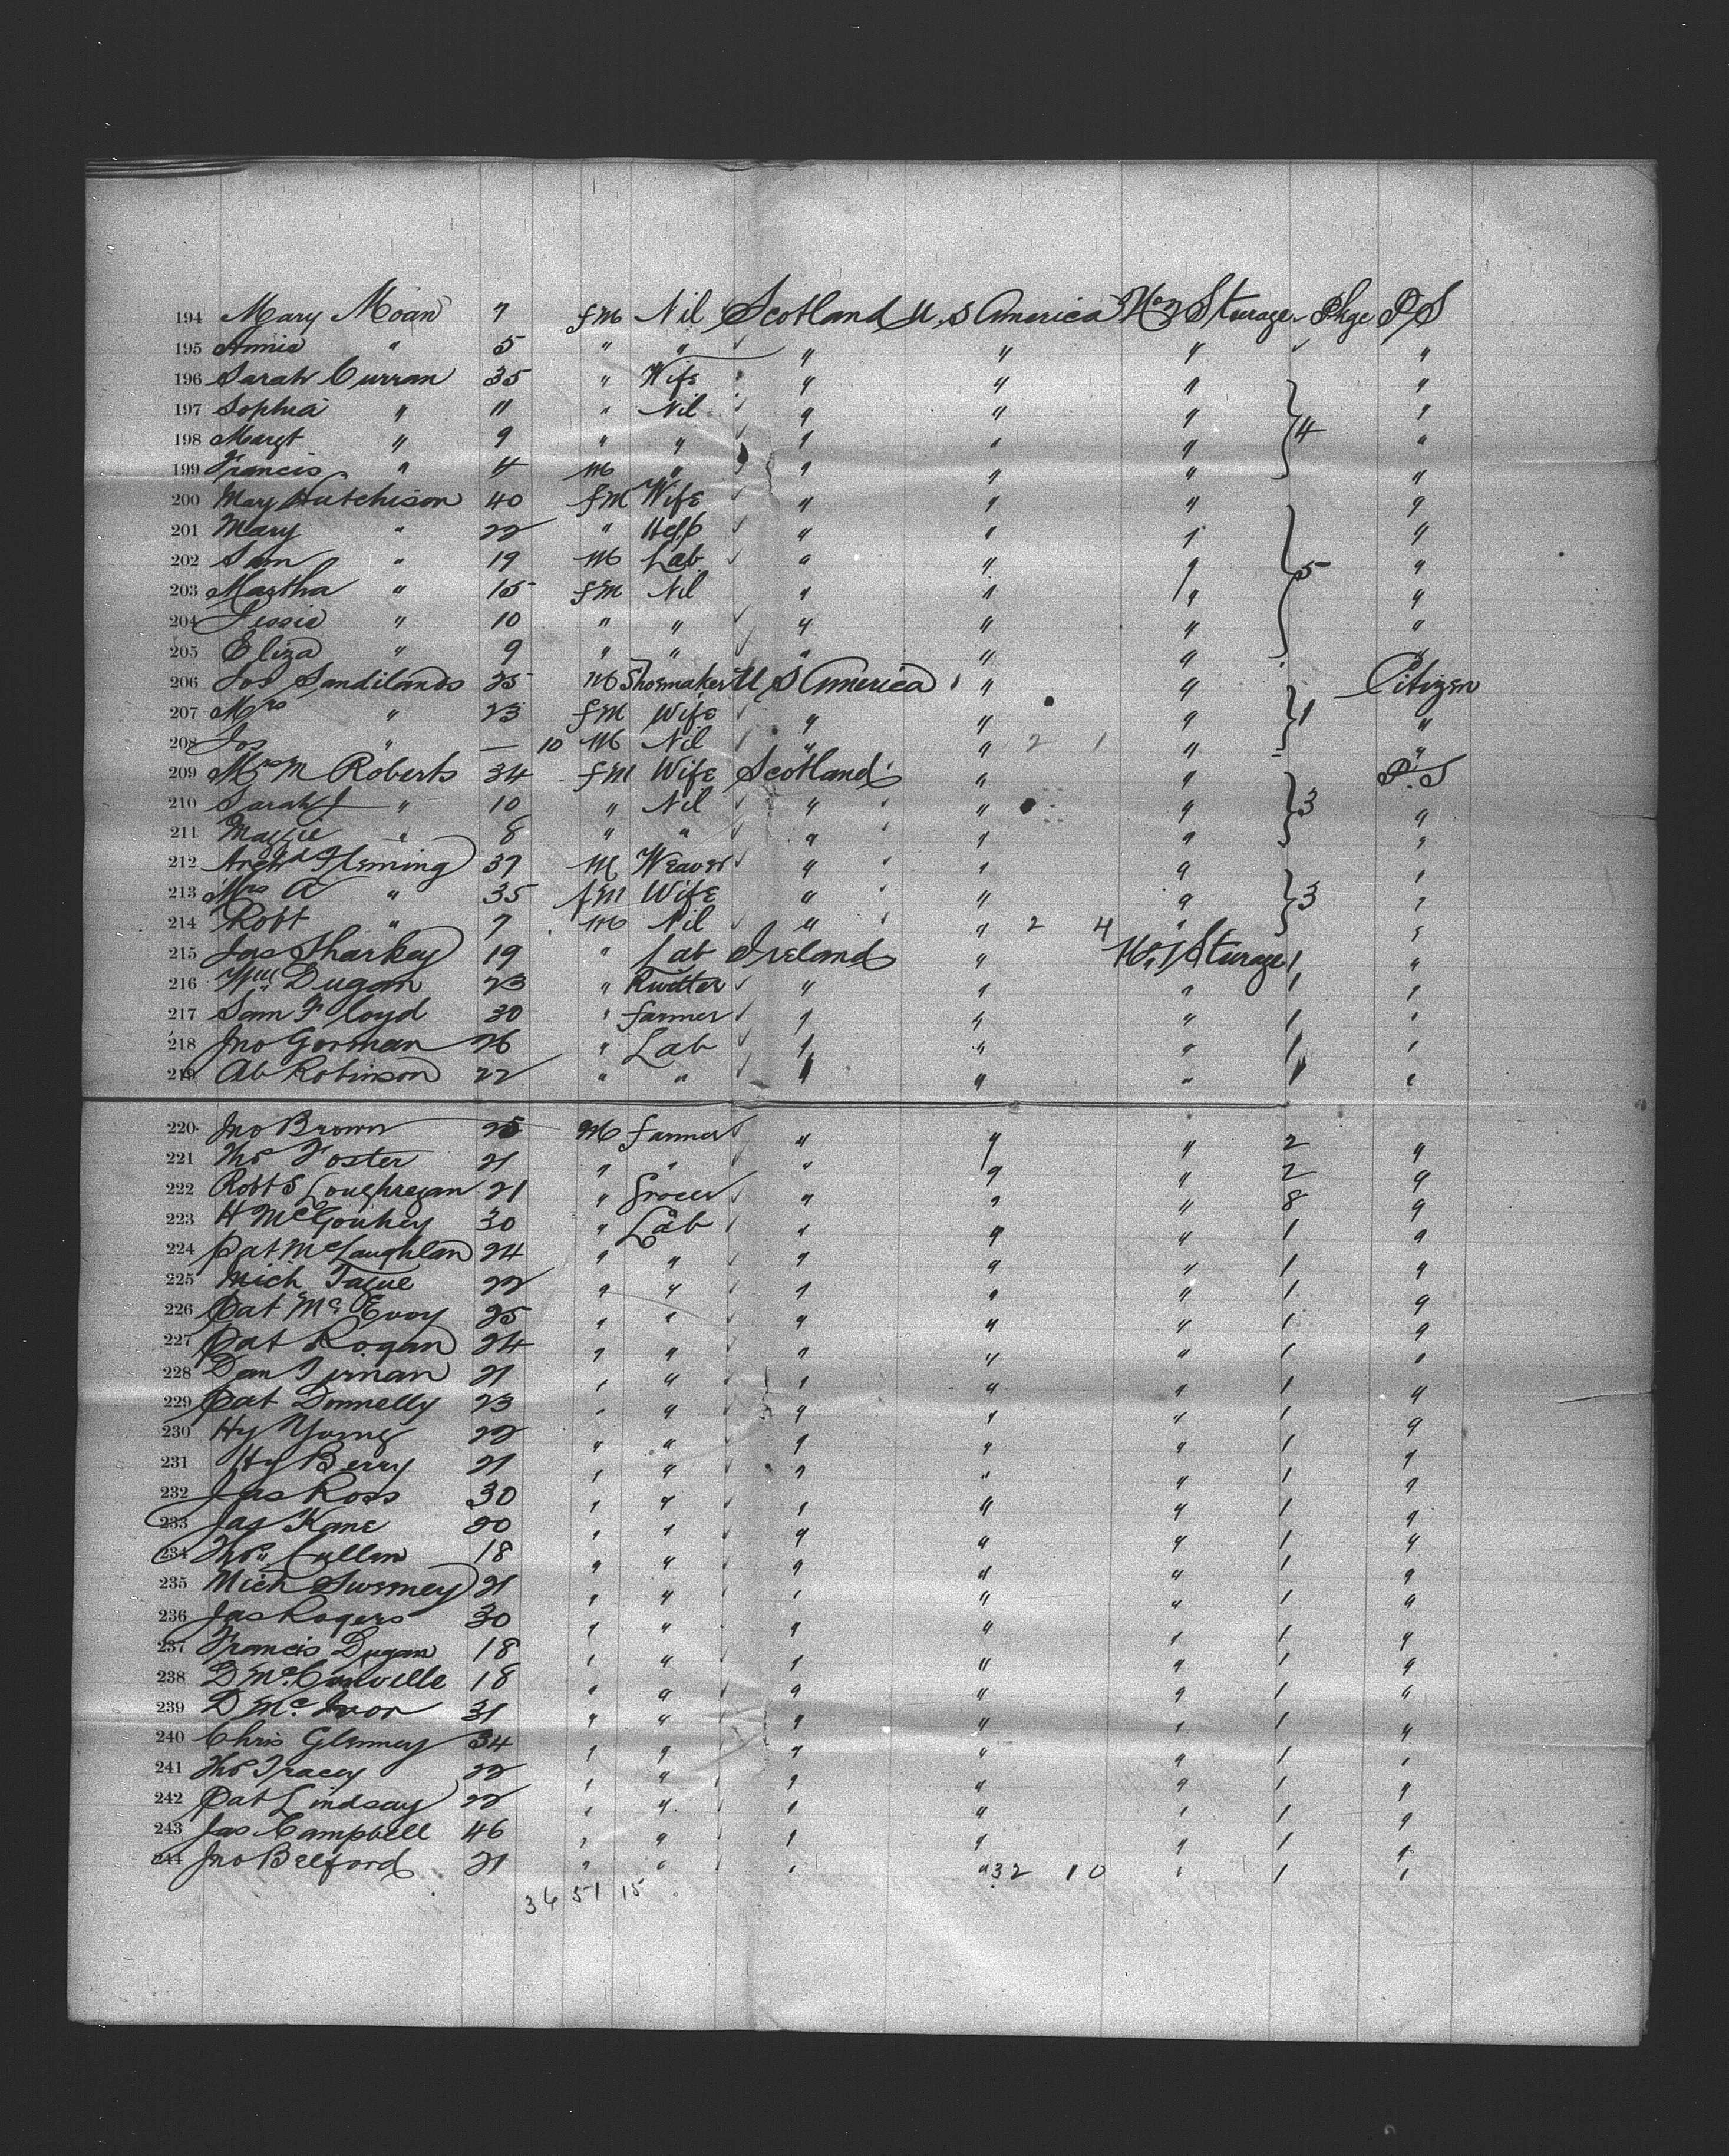 194 Mary Moan 7 fm Nil Scotland U S America No 2 Sturage Phge P S
195 Annie " 5 " " " " " "
196 Sarah Curran 35 " Wife " " " "
197 Sophia " 11 " Nil " " " "
198 Margt " 9 " " " " " 4 "
199 Francis " 4 m " " " " "
200 Mary Hutchison 40 fm Wife " " " "
201 Mary " 22 " Help " " " "
202 Sam " 19 m Lab " " " 5 "
203 Martha " 15 fm Nil " " " "
204 Jessie " 10 " " " " " "
205 Eliza " 9 " " " " " "
206 Jos Sandilands 35 m Shoemaker U S America " " Citizen
207 Mrs " 23 fm Wife " " " 1 "
208 Jos " — 10 m Nil " " 2 1 " "
209 Mrs M Roberts 34 fm Wife Scotland " " P. S
210 Sarah J " 10 " Nil " " " 3 "
211 Maggie " 8 " " " " " "
212 Archd Fleming 37 m Weaver " " " "
213 Mrs A " 35 fm Wife " " " 3 "
214 Robt " 7 m Nil " " 2 4 " "
215 Jas Sharkey 19 " Lab Ireland " No 1 Sturage 1 "
216 Wm Dugan 23 " " " " 1 "
217 Sam Floyd 30 " farmer " " " 1 "
218 Jno Gorman 26 " Lab " " " 1 "
219 Ab Robinson 22 " " " " " 1 "
220 Jno Brown 25 M farmer " " " 2 "
221 Tho Foster 21 " " " " " 2 "
222 Robt S Loughregan 21 " Grocer " " " 8 "
223 H McGouhey 30 " Lab " " " 1 "
224 Pat McLaughlan 24 " " " " " 1 "
225 Mich Tague 22 " " " " " 1 "
226 Pat McEvoy 25 " " " " " 1 "
227 Pat Rogan 24 " " " " " 1 "
228 Dan Tirnan 21 " " " " " 1 "
229 Pat Donnelly 23 " " " " " 1 "
230 Hy Young 22 " " " " " 1 "
231 Hy Berry 21 " " " " " 1 "
232 Jas Ross 30 " " " " " 1 "
233 Jas Kane 20 " " " " " 1 "
234 Thos Cullen 18 " " " " " 1 "
235 Mich Sweeney 21 " " " " " 1 "
236 Jas Rogers 30 " " " " " 1 "
237 Francis Dugan 18 " " " " " 1 "
238 D McConville 18 " " " " " 1 "
239 D McIvor 31 " " " " " 1 "
240 Chris Glenney 34 " " " " " 1 "
241 Tho Tracey 22 " " " " " 1 "
242 Pat Lindsay 22 " " " " " 1 "
243 Jas Campbell 46 " " " " " 1 "
244 Jno Belford 21 " " " " 32 10 " 1 "
36 51 15